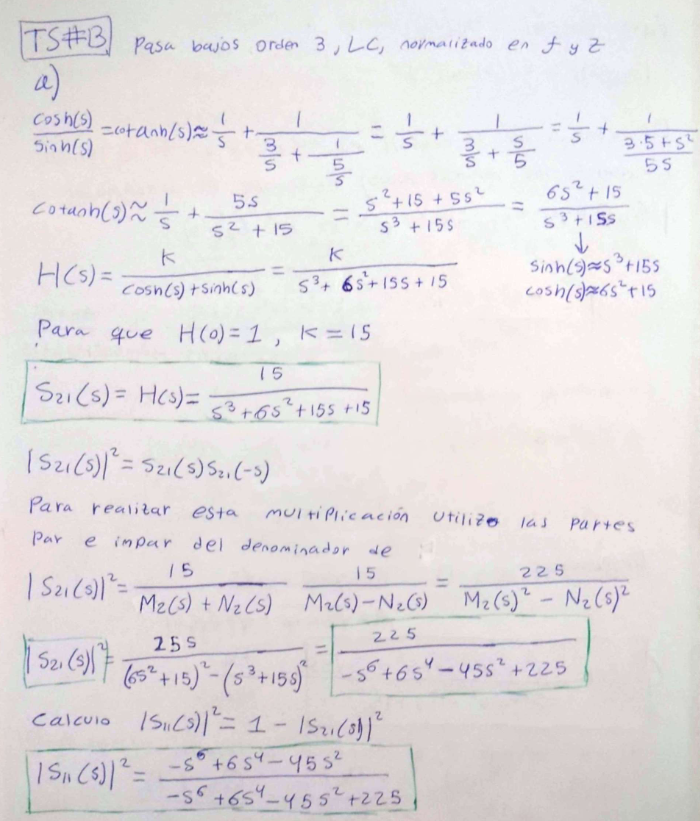 TS#3 Pasa bajos orden 3, LC, normalizado en f y Z
a)
cosh(s)/sinh(s) = cotanh(s) ≈ 1/s + 1/(3/s + 1/(5/s)) = 1/s + 1/(3/s + s/5) = 1/s + 1/((3·5+s²)/5s)
cotanh(s) ≈ 1/s + 5s/(s² + 15) = (s² + 15 + 5s²)/(s³ + 15s) = (6s² + 15)/(s³ + 15s)
↓
sinh(s)≈s³+15s
cosh(s)≈6s²+15
H(s) = K/(cosh(s) + sinh(s)) = K/(s³ + 6s² + 15s + 15)
Para que H(0) = 1, K = 15
S21(s) = H(s) = 15/(s³ + 6s² + 15s + 15)
|S21(s)|² = S21(s) S21(-s)
Para realizar esta multiplicación utilizo las partes
par e impar del denominador de :
|S21(s)|² = 15/(M2(s) + N2(s)) 15/(M2(s) - N2(s)) = 225/(M2(s)² - N2(s)²)
|S21(s)|² = 255/((6s²+15)² - (s³+15s)²) = 225/(-s⁶ + 6s⁴ - 45s² + 225)
Calculo |S11(s)|² = 1 - |S21(s)|²
|S11(s)|² = (-s⁶ + 6s⁴ - 45s²)/(-s⁶ + 6s⁴ - 45s² + 225)